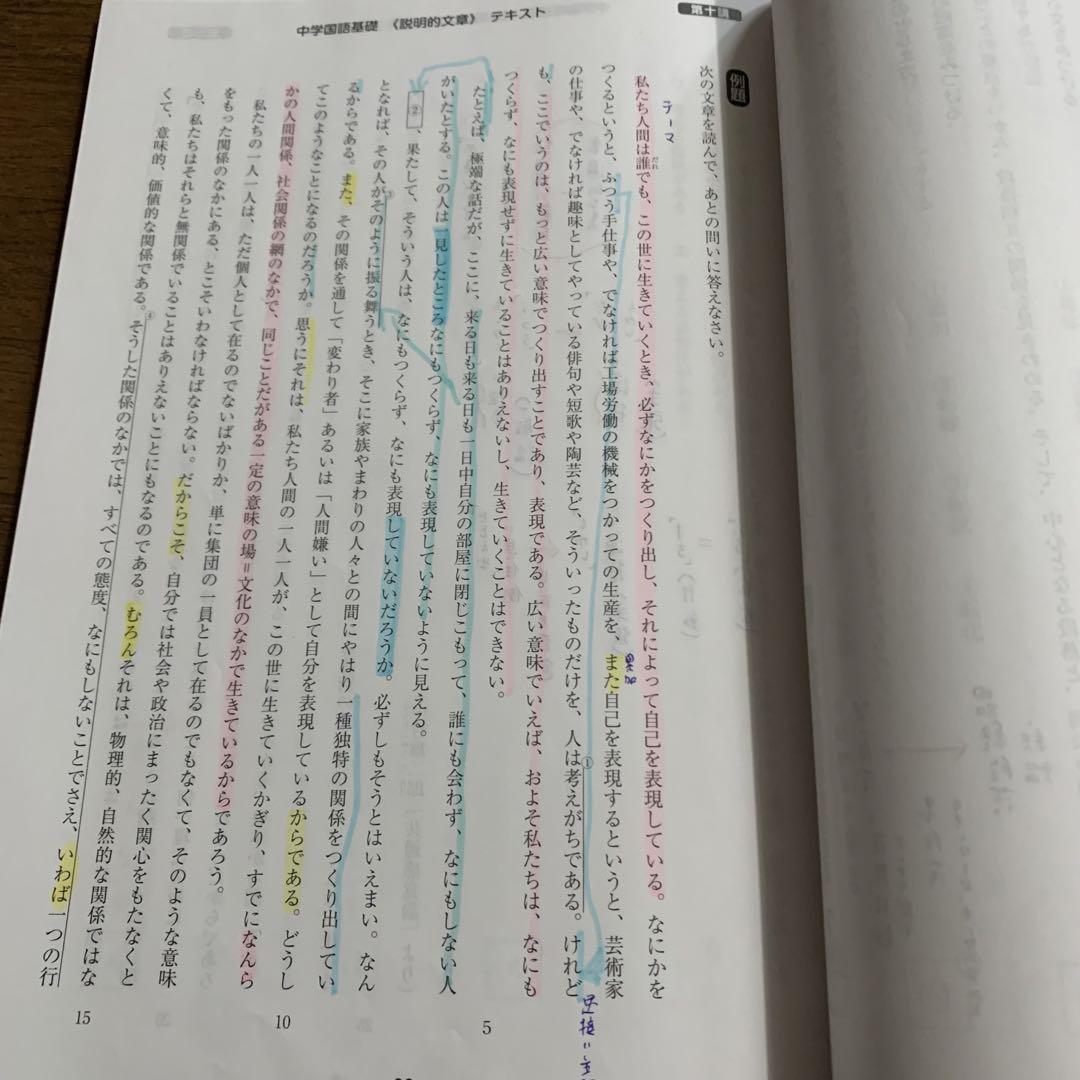 第十講
中学国語基礎 《説明的文章》 テキスト
例題
次の文章を読んで、あとの問いに答えなさい。
テーマ
私たち人間は誰でも、この世に生きていくとき、必ずなにかをつくり出し、それによって自己を表現している。なにかを
だれ
つくるというと、ふつう手仕事や、でなければ工場労働の機械をつかっての生産を、また自己を表現するというと、芸術家
累加
の仕事や、でなければ趣味としてやっている俳句や短歌や陶芸など、そういったものだけを、人は考えがちである。けれど
①
も、ここでいうのは、もっと広い意味でつくり出すことであり、表現である。広い意味でいえば、およそ私たちは、なにも
つくらず、なにも表現せずに生きていることはありえないし、生きていくことはできない。
たとえば、極端な話だが、ここに、来る日も来る日も一日中自分の部屋に閉じこもって、誰にも会わず、なにもしない人
5
がいたとする。この人は一見したところなにもつくらず、なにも表現していないように見える。
②、果たして、そういう人は、なにもつくらず、なにも表現していないだろうか。必ずしもそうとはいえまい。なん
となれば、その人がそのように振る舞うとき、そこに家族やまわりの人々との間にやはり一種独特の関係をつくり出してい
③
るからである。また、その関係を通して「変わり者」あるいは「人間嫌い」として自分を表現しているからである。どうし
てこのようなことになるのだろうか。思うにそれは、私たち人間の一人一人が、この世に生きていくかぎり、すでになんら
10
かの人間関係、社会関係の網のなかで、同じことだがある一定の意味の場＝文化のなかで生きているからであろう。
私たちの一人一人は、ただ個人として在るのでないばかりか、単に集団の一員として在るのでもなくて、そのような意味
をもった関係のなかにある、とこそいわなければならない。だからこそ、自分では社会や政治にまったく関心をもたなくと
も、私たちはそれらと無関係でいることはありえないことにもなるのである。むろんそれは、物理的、自然的な関係ではな
くて、意味的、価値的な関係である。そうした関係のなかでは、すべての態度、なにもしないことでさえ、いわば一つの行
④
15